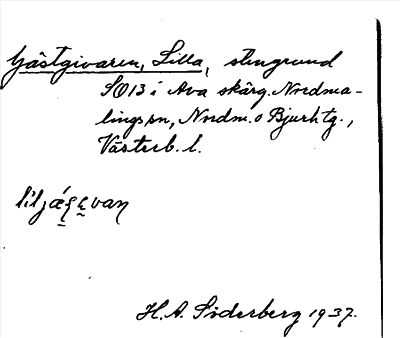 Gästgivaren, Lilla, stengrund
SO13 i Ava skärg. Nordma-
lings sn, Nordm. o Bjurh. tg.,
Västerb. l.
H. A. Söderberg 1937.